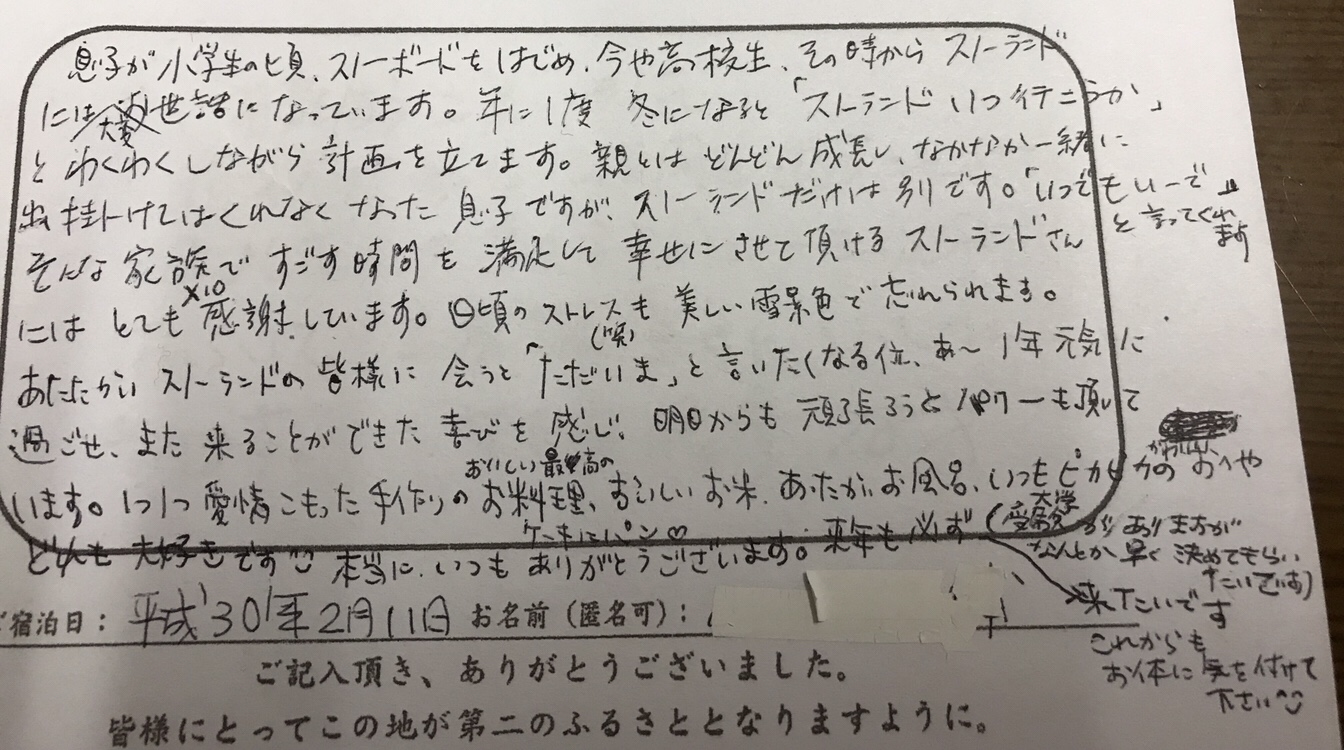 息子が小学生の頃、スノーボードをはじめ、今や高校生、その時からストーランド
には大変お世話になっています。年に1度 冬になると「ストーランド いつ行こうか」
と わくわくしながら 計画を立てます。親とは どんどん 成長し、なかなか一緒に
出掛けてはくれなくなった 息子ですが、ストーランドだけは別です。「いつでもいーで」
と言ってくれ
ます
そんな家族で すごす時間を 満足して 幸せにさせて頂ける ストーランドさん
には とても×10 感謝しています。日頃のストレスも 美しい雪景色で 忘れられます。
(笑)
あたたかい ストーランドの 皆様に 会うと「ただいま」と言いたくなる位、あ〜 1年元気に
過ごせ、また 来ることができた 喜びを 感じ、明日からも 頑張ろうと パワーも頂いて
います。1つ1つ 愛情こもった 手作りの おいしい最高の お料理、お米、あたたかいお風呂、いつもピカピカの かわいい おへや
ケーキにパン♡
どれも 大好きです 本当に、いつも ありがとうございます。来年も必ず
(大学受験がありますが
なんとか早く 決めてもらい
たいです)
来たいです
これからも
お体に 気を付けて
下さい
宿泊日：平成30年2月11日 お名前（匿名可）：
ご記入頂き、ありがとうございました。
皆様にとってこの地が第二のふるさととなりますように。